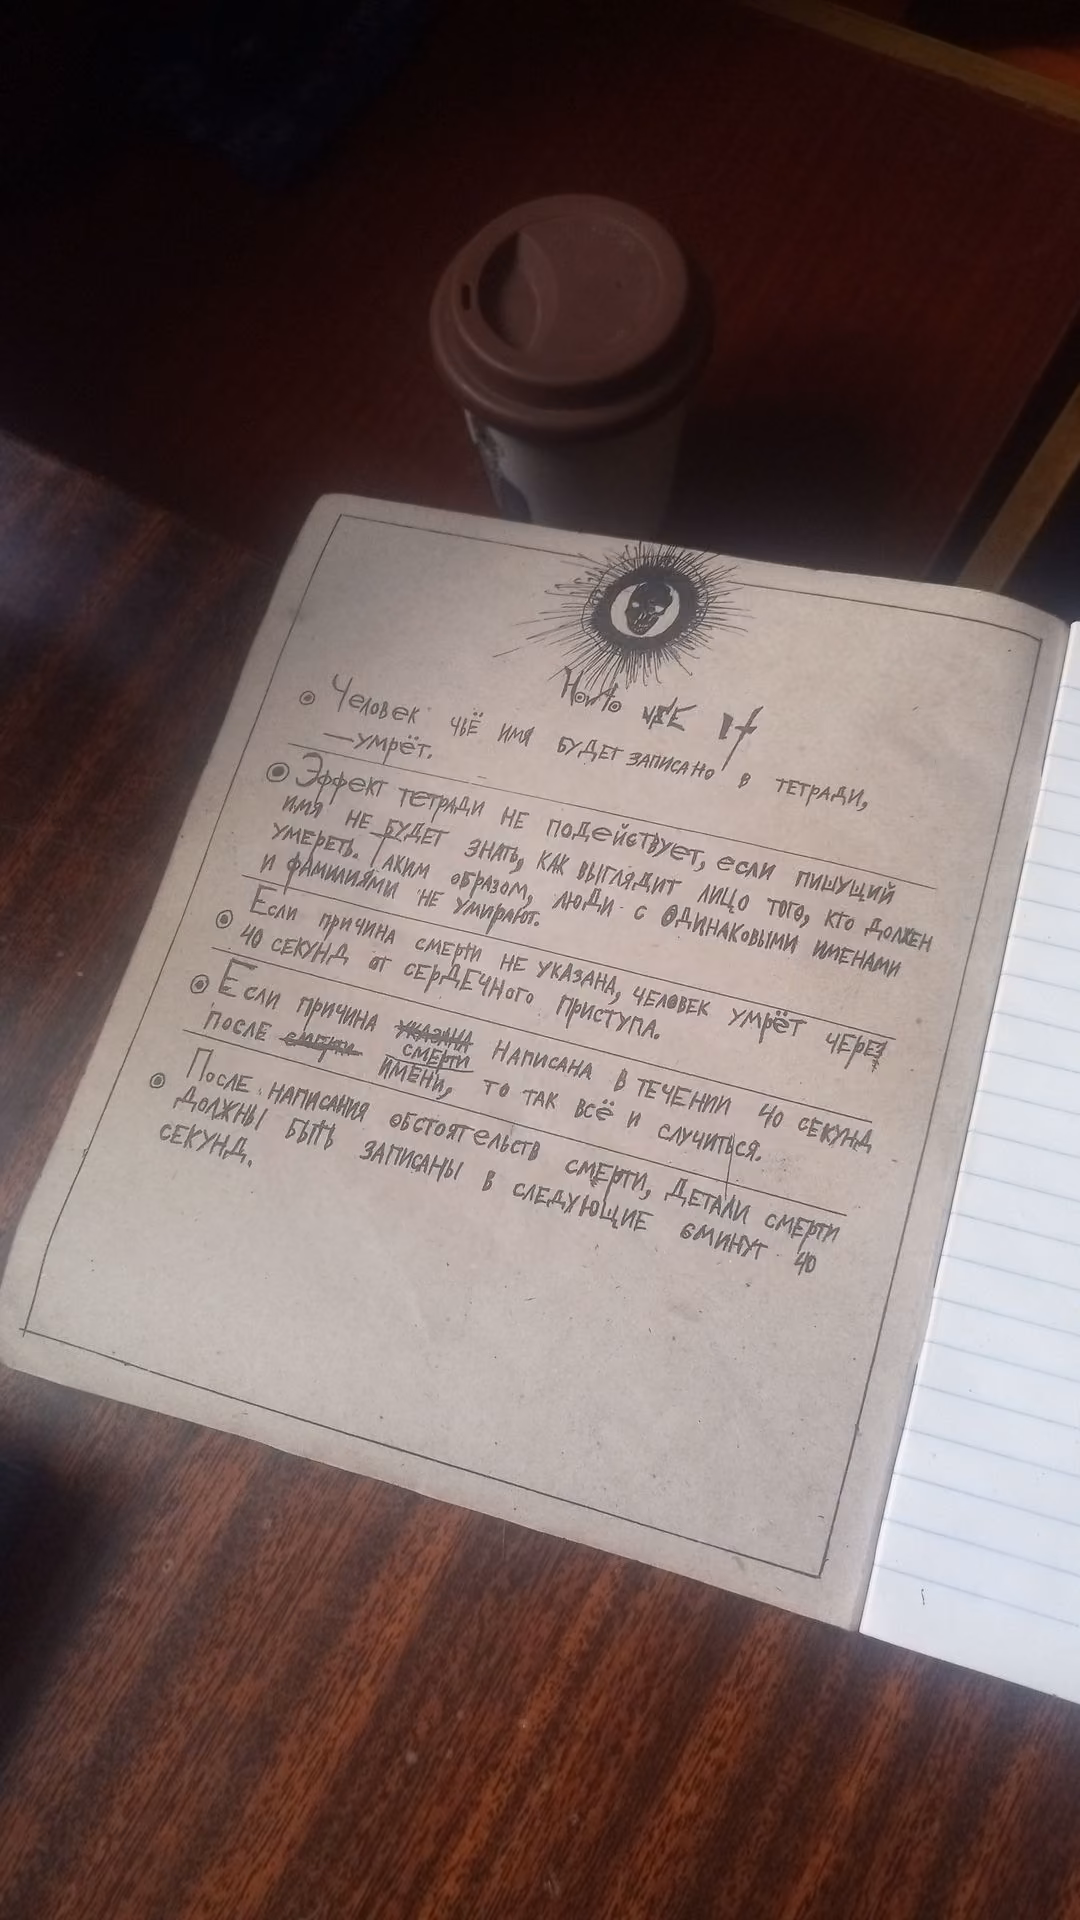 How to USE It
Человек чьё имя будет записано в тетради,
— умрёт.
Эффект тетради не подействует, если пишущий
имя не будет знать, как выглядит лицо того, кто должен
умереть. Таким образом, люди с одинаковыми именами
и фамилиями не умирают.
Если причина смерти не указана, человек умрёт через
40 секунд от сердечного приступа.
Если причина указана смерти написана в течении 40 секунд
после смерти имени, то так всё и случиться.
После написания обстоятельств смерти, детали смерти
должны быть записаны в следующие 6 минут 40
секунд.